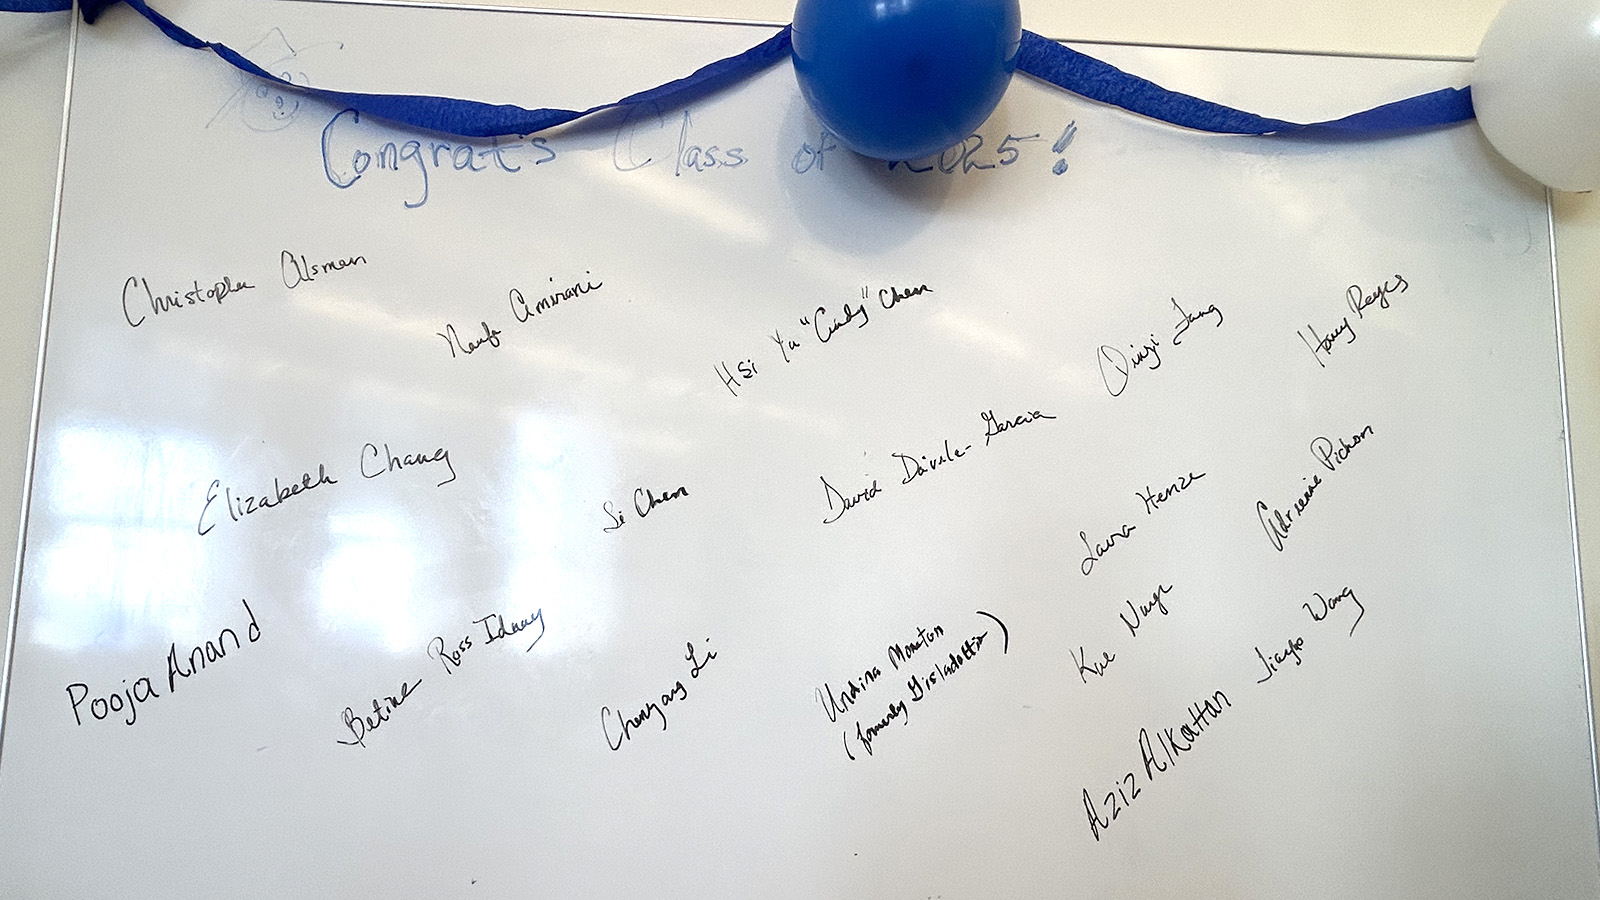 Congrats Class of 2025!
Christopher Alsman
Amirani
Hsi Yu "Cindy" Chen
Qinyi Fang
Reyes
Elizabeth Chang
Li Chen
David Garcia
Laura Henze
Adrienne Pichon
Pooja Anand
Betine Ross Idnay
Chenyang Li
Undina
(formerly Gisladottir)
Kue
Wang
Aziz Alkattan